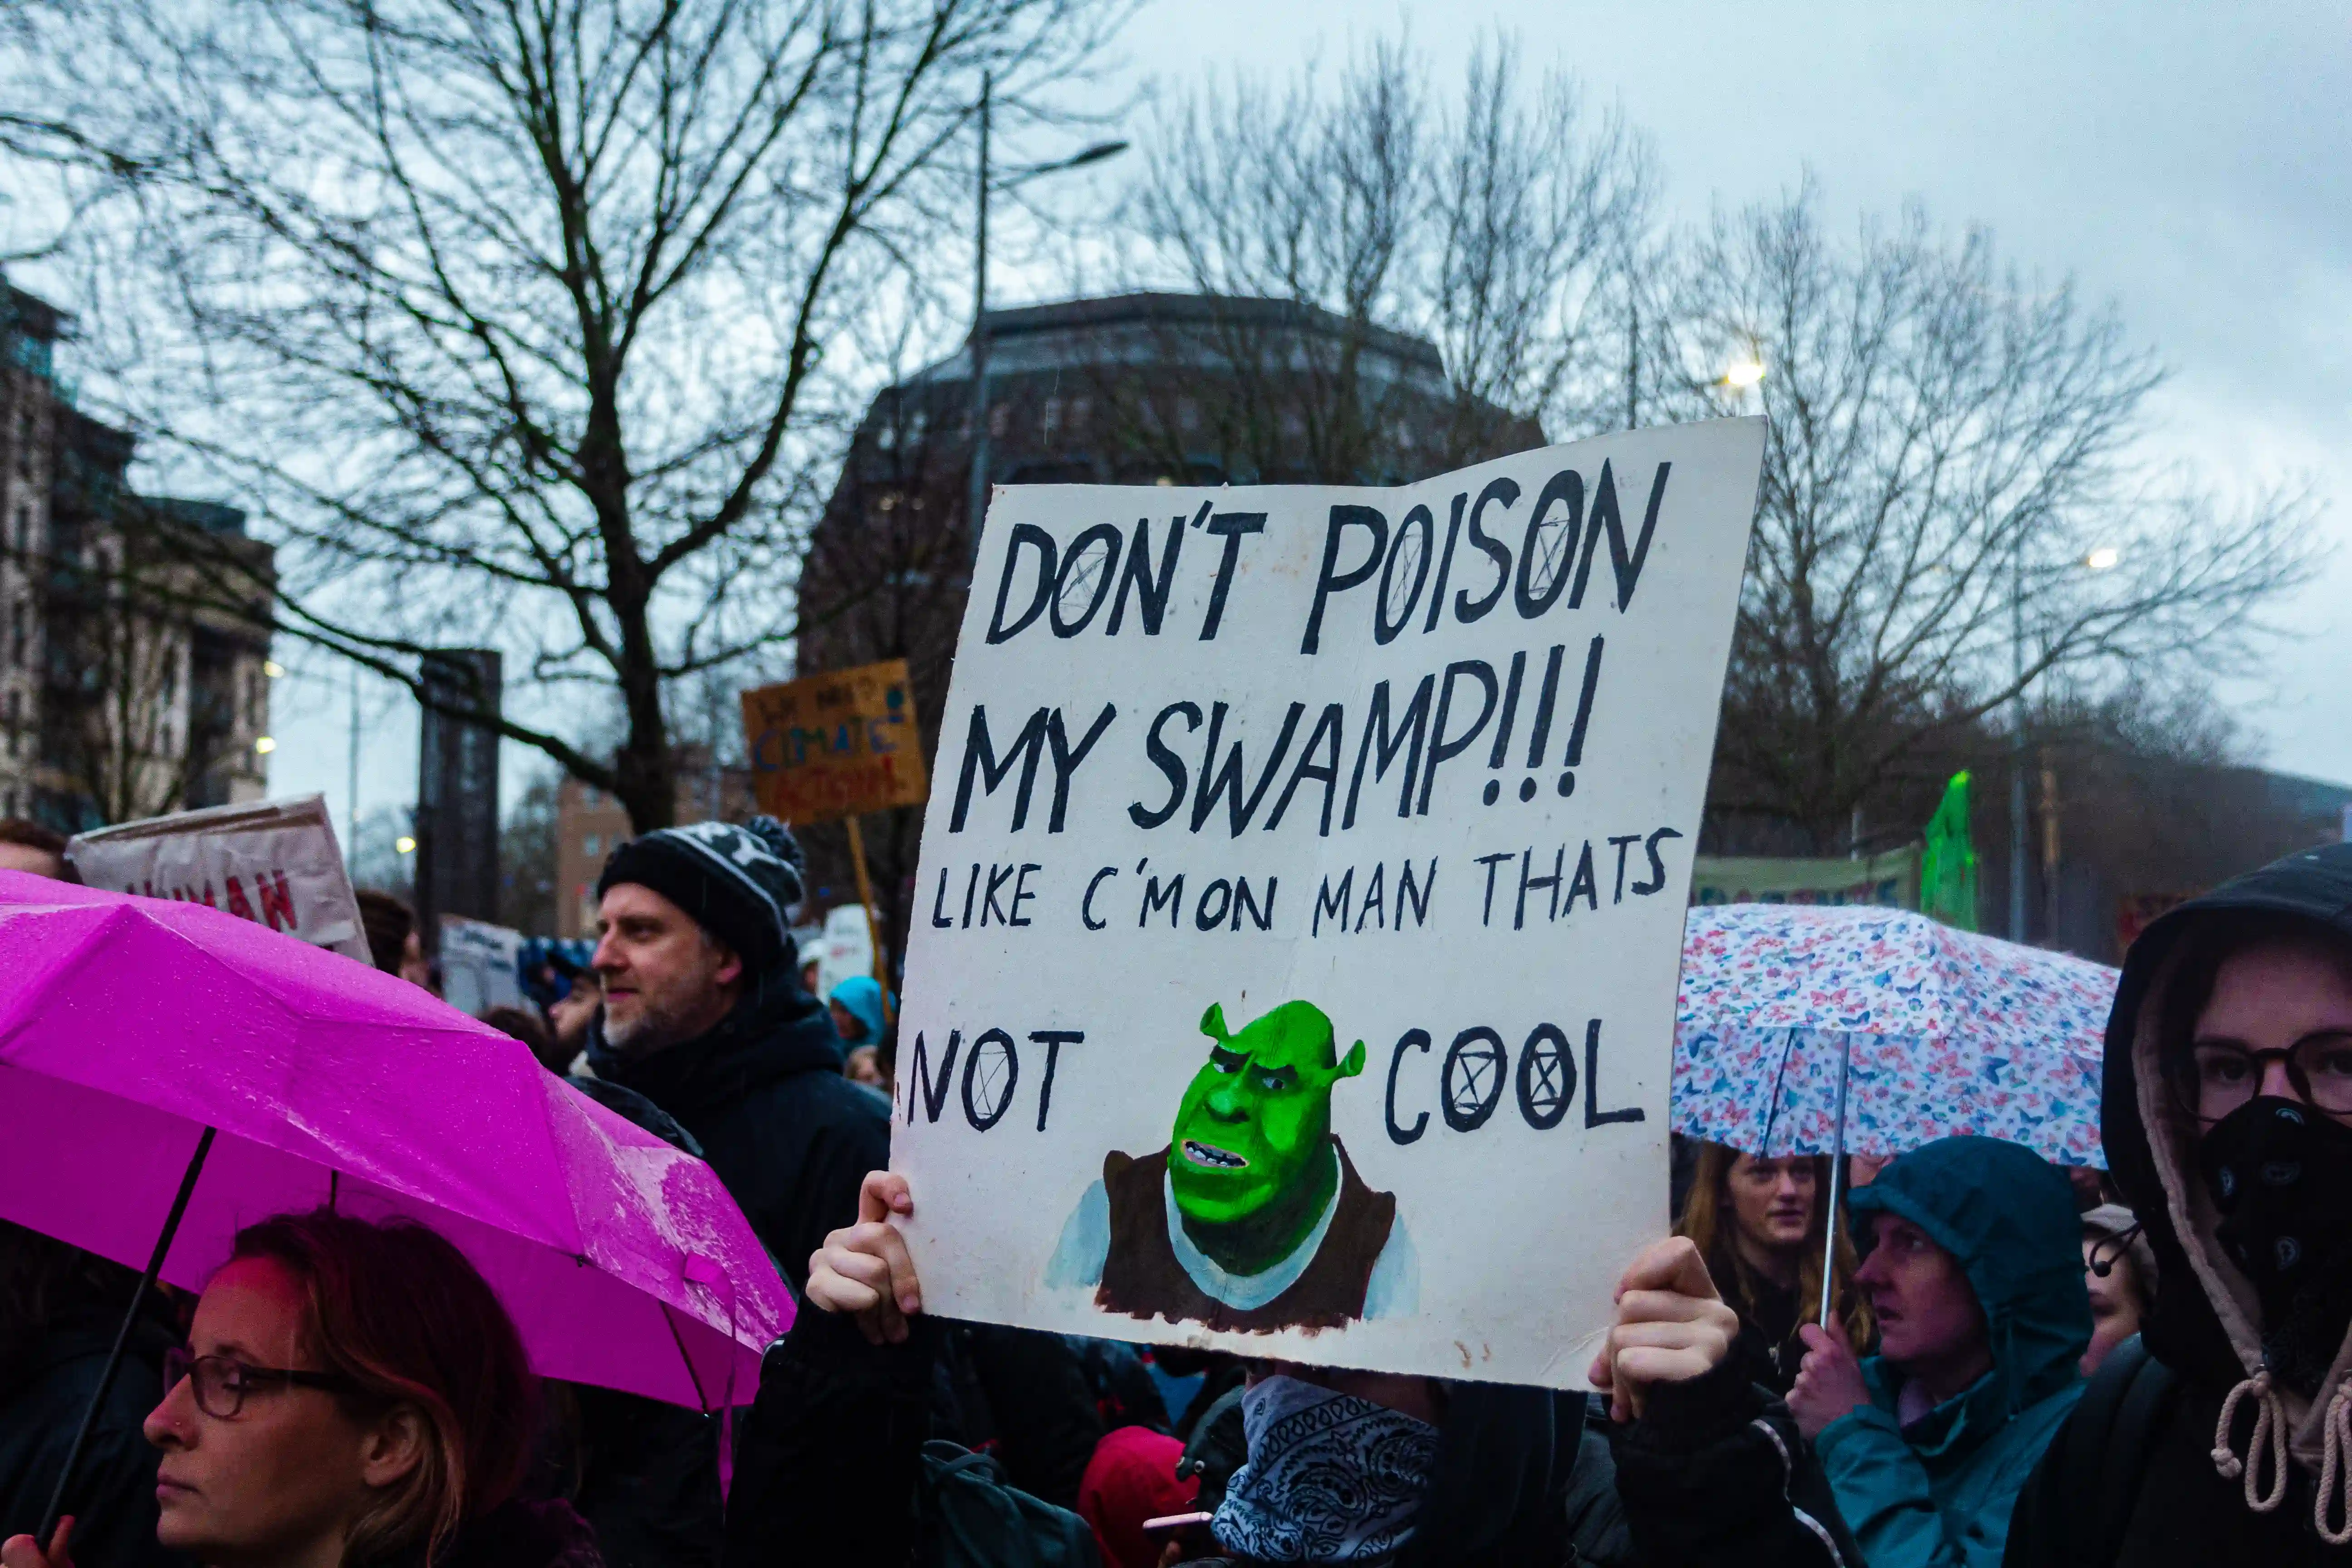 DON'T POISON
MY SWAMP!!!
LIKE C'MON MAN THATS
NOT COOL
WE NEED
CLIMATE
ACTION
HUMAN